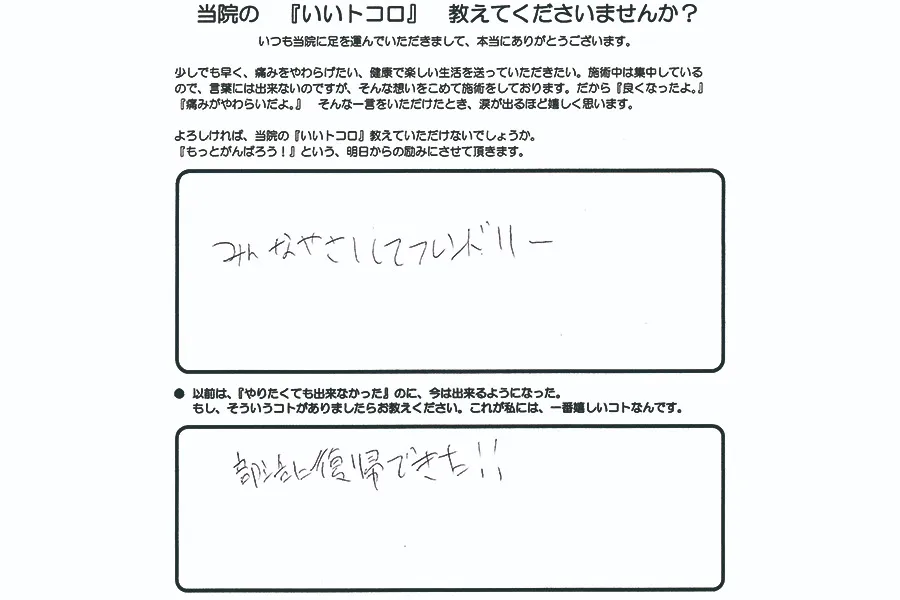 当院の 『いいトコロ』 教えてくださいませんか？
いつも当院に足を運んでいただきまして、本当にありがとうございます。
少しでも早く、痛みをやわらげたい、健康で楽しい生活を送っていただきたい。施術中は集中している
ので、言葉には出来ないのですが、そんな想いをこめて施術をしております。だから『良くなったよ。』
『痛みがやわらいだよ。』 そんな一言をいただけたとき、涙が出るほど嬉しく思います。
よろしければ、当院の『いいトコロ』教えていただけないでしょうか。
『もっとがんばろう！』という、明日からの励みにさせて頂きます。
みんなやさししてフレンドリー
● 以前は、『やりたくても出来なかった』のに、今は出来るようになった。
もし、そういうコトがありましたらお教えください。これが私には、一番嬉しいコトなんです。
部活に復帰できた!!